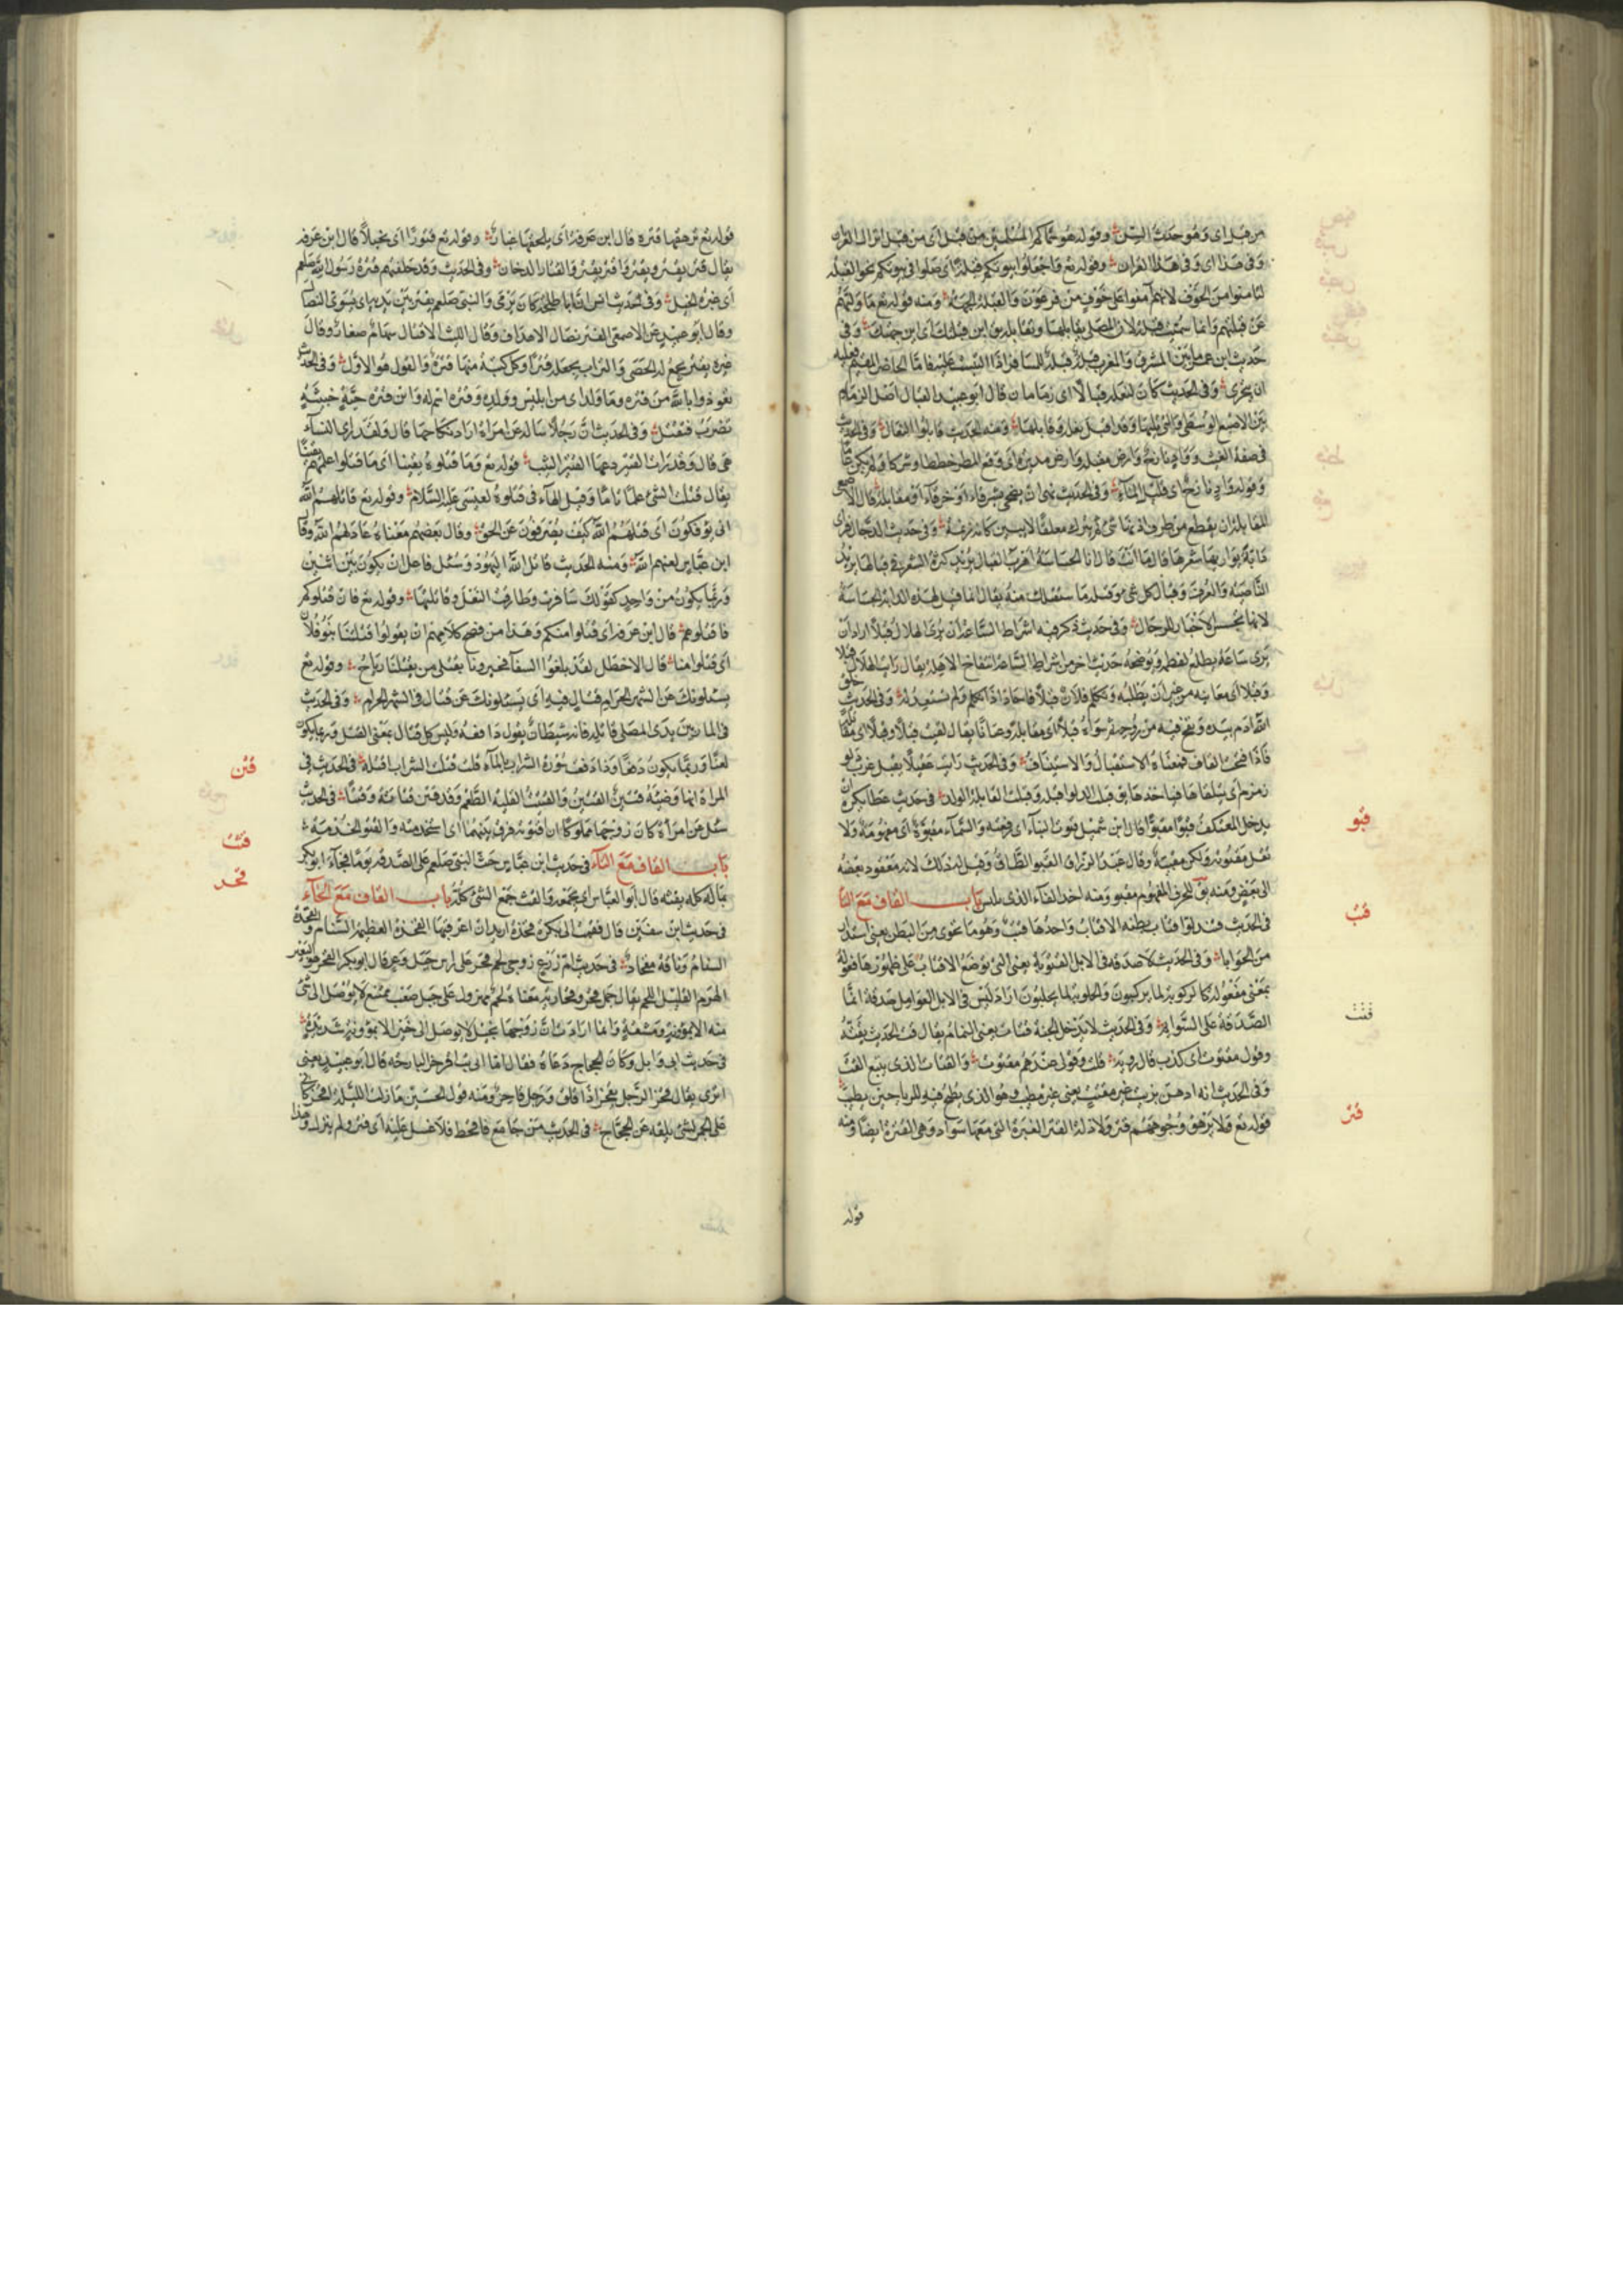 من قبل اى وهو حدث السن وقوله هو سماكم المسلمين من قبل اى من قبل انزال القران
وفى هذا اى وفى هذا القران وقوله تع واجعلوا بيوتكم قبلة اى صلوا فى بيوتكم نحو القبله
لتامنوا من الخوف لانهم امنوا على خوف من فرعون والقبله الجهة ومنه قوله تع ما وليهم
عن قبلتهم وانما سميت قبلة لان المصلى يقابلها وتقابله يق اين قبلتك اى اين جهتك وفى
حديث ابن عمر ما بين المشرق والمغرب قبلة قبلة للمسافر اذا التبست عليه فاما الحاضر المقيم فعليه
ان يتحرى وفى الحديث كان لنعله قبالان اى زمامان قال ابو عبيد القبال اصل الزمام
بين الاصبع الوسطى والتى تليها وقد اقبل نعله وقابلها ومنه الحديث قابلوا النعال وفى الحديث
فى صفة الغيث وارض مقبلة وارض مدبرة اى وقع المطر خططا وشركا ولم يكن عاما
وفى الحديث نهى ان يضحى بشرقاء او خرقاء او مقابلة قال الاصمعى
المقابلة ان يقطع من طرف اذنها شئ ثم يترك معلقا لا يبين كانه زنمة وفى حديث الدجال فراى
دابة يواريها شعرها قال ما انت قال انا الجساسة اهدب القبال يريد كثرة الشعر فى قبالها يريد
الناصية والعرف وقبال كل شئ وقبله ما يستقبلك منه يقال انما قيل لهذه الدابة الجساسة
لانها تجسس الاخبار للدجال وفى حديث ذكر فيه اشراط الساعة ان يرى الهلال قبلا اراد ان
يرى ساعة يطلع لعظمه ويوضحه حديث اخر من اشراط الساعة انتفاخ الاهلة يقال رايت الهلال قبلا
وقبلا اى معاينة من غير ان يطلبه وتكلم فلان قبلا فاجاد اذا تكلم ولم يستعد له وفى الحديث خلق
الله ادم بيده ونفخ فيه من روحه ثم سواه قبلا اى مقابلة وعيانا يقال لقيت قبلا وقبلا اى مقابلة
فاذا فتحت القاف فمعناه الاستقبال والاستيناف وفى الحديث رايت عقيلا يقبل غرب
زمزم اى يتلقاها فياخذها يق قبل الدلو اقبله وقبلت القابلة الولد فى حديث عطا يكره ان
يدخل المعتكف قبوا مقبوا قال ابن شميل قبوت البناء اى رفعته والسماء مقبوة اى مضمومة ولا
تقل مقبوبة ولكن مقبية وقال عبد الرزاق القبو الطاق وقيل له ذلك لانه معقود بعضه
الى بعض ومنه يق للحرف المضموم مقبو ومنه اخذ القباء الذى يلبس باب القاف مع التا
فى الحديث فتندلق اقتاب بطنه الاقتاب واحدها قتب وهو ما تحوى من البطن يعنى استدار
من الحوايا وفى الحديث لا صدقة فى الابل القتوبة يعنى التى توضع الاقتاب على ظهورها فعولة
بمعنى مفعولة كالركوبة لما يركبون والحلوبة لما يحلبون اراد ليس فى الابل العوامل صدقة انما
الصدقة على السوايم وفى الحديث لا يدخل الجنة قتات يعنى النمام يقال قت الحديث يقته
وقول مقتوت اى كذب قال روبة قلت وقولى عندهم مقتوت والقتات الذى يتتبع القت
وفى الحديث انه ادهن بزيت غير مقتت يعنى غير مطيب وهو الذى يطبخ فيه للرياحين يطيب
قوله تع ولا يرهق وجوههم قتر ولا ذلة القتر الغبرة التى معها سواد وهى القترة ايضا ومنه
قوله
قبو
قتب
قتت
قتر
قوله تع ترهقها قترة قال ابن عرفة اى يلحقها غبار وقوله تع قتورا اى بخيلا قال ابن عرفه
يقال قتر يقتر ويقتر واقتر يقتر والقتار الدخان وفى الحديث وقد خلفتهم قترة رسول الله صلعم
اى غبرة الخيل وفى الحديث انس ان ابا طلحة كان يرمى والنبى صلعم يقتر بين يديه اى يسوى النصال
وقال ابو عبيد عن الاصمعى القتر نصال الاهداف وقال الليث الاقتار سهام صغار وقال
غيره يقتر يجمع له الحصى والتراب يجعله قترا وكل كثبة منها قترة والقول هو الاول وفى الحديث
تعوذوا بالله من قترة وما ولد اى من ابليس وولده وقترة اسم له وابن قترة حية خبيثة
تضرب فتقتل وفى الحديث ان رجلا ساله عن امراة اراد نكاحها قال وبقدر اى النساء
هى قال وقد رات القتير دعها القتير الشيب قوله تع وما قتلوه يقينا اى ما قتلوا علمهم يقينا
يقال قتلت الشئ علما تاما وقيل الهاء فى قتلوه لعيسى عليه السلام وقوله تع قاتلهم الله
انى يؤفكون اى قتلهم الله كيف يصرفون عن الحق وقال بعضهم معناه عاداهم الله وقال
ابن عباس لعنهم الله ومنه الحديث قاتل الله اليهود وسبيل فاعل ان يكون بين اثنين
وربما يكون من واحد كقولك سافرت وطارقت النعل وقاتلتها وقوله تع فان قتلوكم
فاقتلوهم قال ابن عرفة اى قتلوا منكم وهذا من فصيح كلامهم ان يقولوا قتلتنا بنو فلان
اى قتلوا منا قال الاخطل لقد بلغوا الشفاء فخبرونا بقتلى من يقتلنا رياح وقوله تع
يسئلونك عن الشهر الحرام قتال فيه اى يسئلونك عن قتال فى الشهر الحرام وفى الحديث
فى المار بين يدى المصلى قاتله فانه شيطان يقول دافعه وليس كل قتال بمعنى القتل وربما يكون
لعنا وربما يكون دفعا وذا دفعت سورة الشراب بالماء قلت قتلت الشراب اقتله فى الحديث فى
المراة انها وضيئة قتين القتين والقتيت القليلة الطعم وقد قتن قتانة وقتنا فى الحديث
سئل عن امراة كان زوجها مملوكا ان اقتوته فرق بينهما اى استخدمته والقتو الخدمة
باب القاف مع الثاء فى حديث ابن عباس حث النبى صلعم على الصدقة يوما فجاء ابو بكر
بماله كله يقثه قال ابو العباس اى يجمعه والقث جمع الشئ كله باب القاف مع الحاء
فى حديث ابى سفين قال فقمت الى بكرة قحدة اريد ان اعرقبها القحدة العظيمة السنام والقحدة
السنام وناقة مقحاد فى حديث ام زرع زوجى لحم جمل قحر على راس جبل وعر قال ابو بكر القحر هو البعير
الهرم القليل اللحم يقال جمل قحر وقحارية معناه لحم مهزول على جبل صعب ممتنع لا يوصل الى شئ
منه الا بمؤنة ومشقة وانما ارادت ان زوجها بخيل لا يوصل الى خير الا بمؤونة شديدة
فى حديث ابى وايل وكان الحجاج دعاه فقال اما انى بت اقحز البارحه قال ابو عبيد يعنى
انزى يقال قحز الرجل يقحز اذا قلق ورجل قاحز ومنه قول الحسن ما زلت الليلة اقحز كانى
على الجمر لشئ بلغه عن الحجاج فى الحديث من جامع فاقحط فلا غسل عليه اى فتر ولم ينزل وهذا
قتن
قثث
قحد